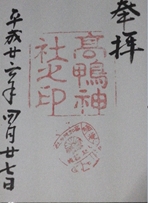 奉拝
高鴨神
社之印
平成廿六年四月廿七日